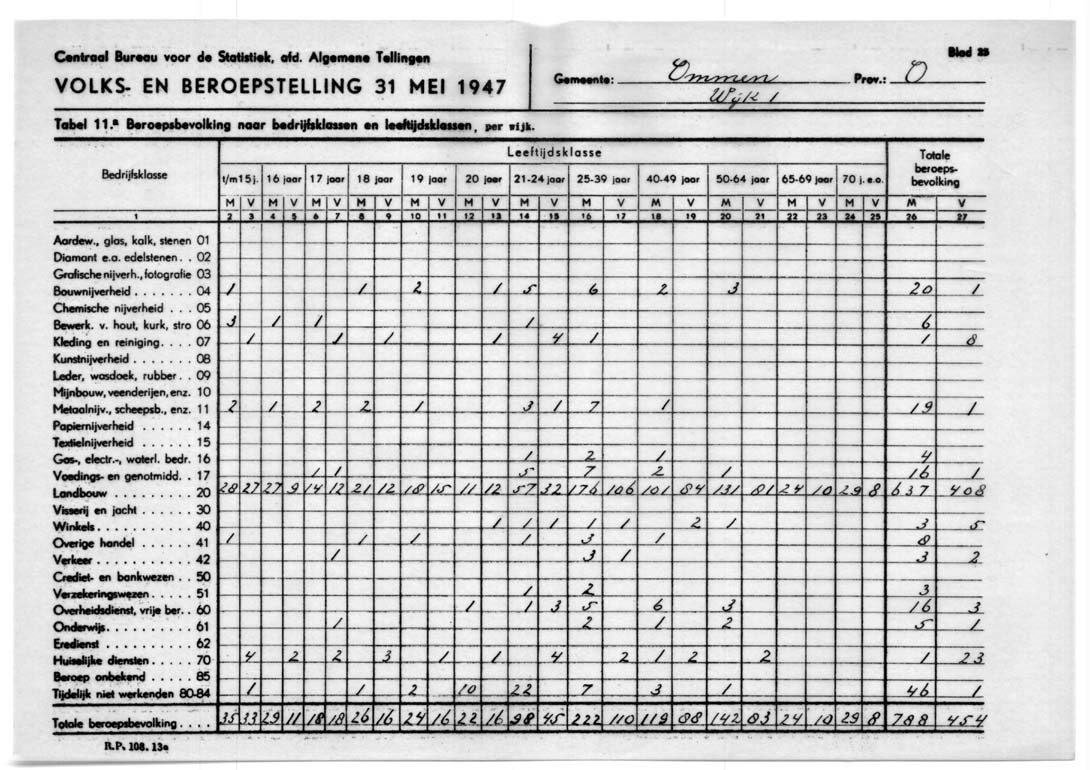 Centraal Bureau voor de Statistiek, afd. Algemene Tellingen
Blad 25
VOLKS- EN BEROEPSTELLING 31 MEI 1947
Gemeente: Ommen Prov.: O
Wijk 1
Tabel 11.a Beroepsbevolking naar bedrijfsklassen en leeftijdsklassen, per wijk.
Bedrijfsklasse Leeftijdsklasse Totale beroepsbevolking
t/m 15 j. 16 jaar 17 jaar 18 jaar 19 jaar 20 jaar 21-24 jaar 25-39 jaar 40-49 jaar 50-64 jaar 65-69 jaar 70 j. e.o.
M V M V M V M V M V M V M V M V M V M V M V M V M V
1 2 3 4 5 6 7 8 9 10 11 12 13 14 15 16 17 18 19 20 21 22 23 24 25 26 27
Aardew., glas, kalk, stenen 01
Diamant e.a. edelstenen . . 02
Grafische nijverh., fotografie 03
Bouwnijverheid . . . . . . . 04 1 1 2 1 5 6 2 3 20 1
Chemische nijverheid . . . 05
Bewerk. v. hout, kurk, stro 06 3 1 1 1 6
Kleding en reiniging. . . . 07 1 1 1 1 4 1 1 8
Kunstnijverheid . . . . . . . 08
Leder, wasdoek, rubber . . 09
Mijnbouw, veenderijen, enz. 10
Metaalnijv., scheepsb., enz. 11 2 1 2 2 1 3 1 7 1 19 1
Papiernijverheid . . . . . . 14
Textielnijverheid . . . . . . 15
Gas-, electr.-, waterl. bedr. 16 1 2 1 4
Voedings- en genotmidd. . 17 1 1 5 7 2 1 16 1
Landbouw . . . . . . . . . 20 28 27 27 9 14 12 21 12 18 15 11 12 57 32 176 106 101 84 131 81 24 10 29 8 637 408
Visserij en jacht . . . . . . 30
Winkels . . . . . . . . . . . 40 1 1 1 1 1 2 1 3 5
Overige handel . . . . . . 41 1 1 1 1 3 1 8
Verkeer . . . . . . . . . . . 42 1 3 1 3 2
Crediet- en bankwezen . . 50
Verzekeringswezen . . . . . 51 1 2 3
Overheidsdienst, vrije ber. . 60 1 1 3 5 6 3 16 3
Onderwijs . . . . . . . . . . 61 1 2 1 2 5 1
Eredienst . . . . . . . . . . 62
Huiselijke diensten . . . . . 70 4 2 2 3 1 1 4 2 1 2 2 1 23
Beroep onbekend . . . . . 85
Tijdelijk niet werkenden 80-84 1 1 2 10 22 7 3 1 46 1
Totale beroepsbevolking . . . . 35 33 29 11 18 18 26 16 24 16 22 16 98 45 222 110 119 88 142 83 24 10 29 8 788 454
R.P. 108. 13a